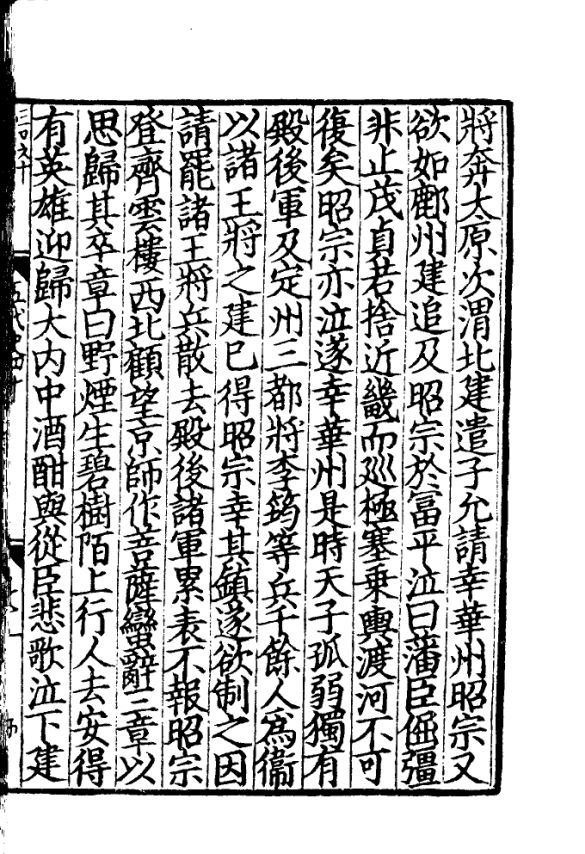 將奔太原次渭北建遣子允請幸華州昭宗又
欲如鄜州建追及昭宗於富平泣曰藩臣倔彊
非止茂貞若捨近畿而廵極塞乗輿渡河不可
復矣昭宗亦泣遂幸華州是時天子孤弱獨有
殿後軍及定州三都將李筠等兵千餘人爲衞
以諸王將之建已得昭宗幸其鎮遂欲制之因
請罷諸王將兵散去殿後諸軍累表不報昭宗
登齊雲樓西北顧望京師作菩薩蠻辭三章以
思歸其卒章曰野煙生碧樹陌上行人去安得
有英雄迎歸大内中酒酣與從臣悲歌泣下建